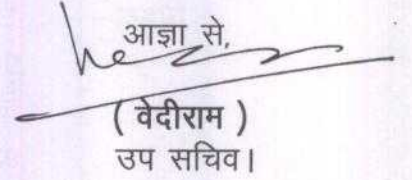 आज्ञा से,
( वेदीराम )
उप सचिव।